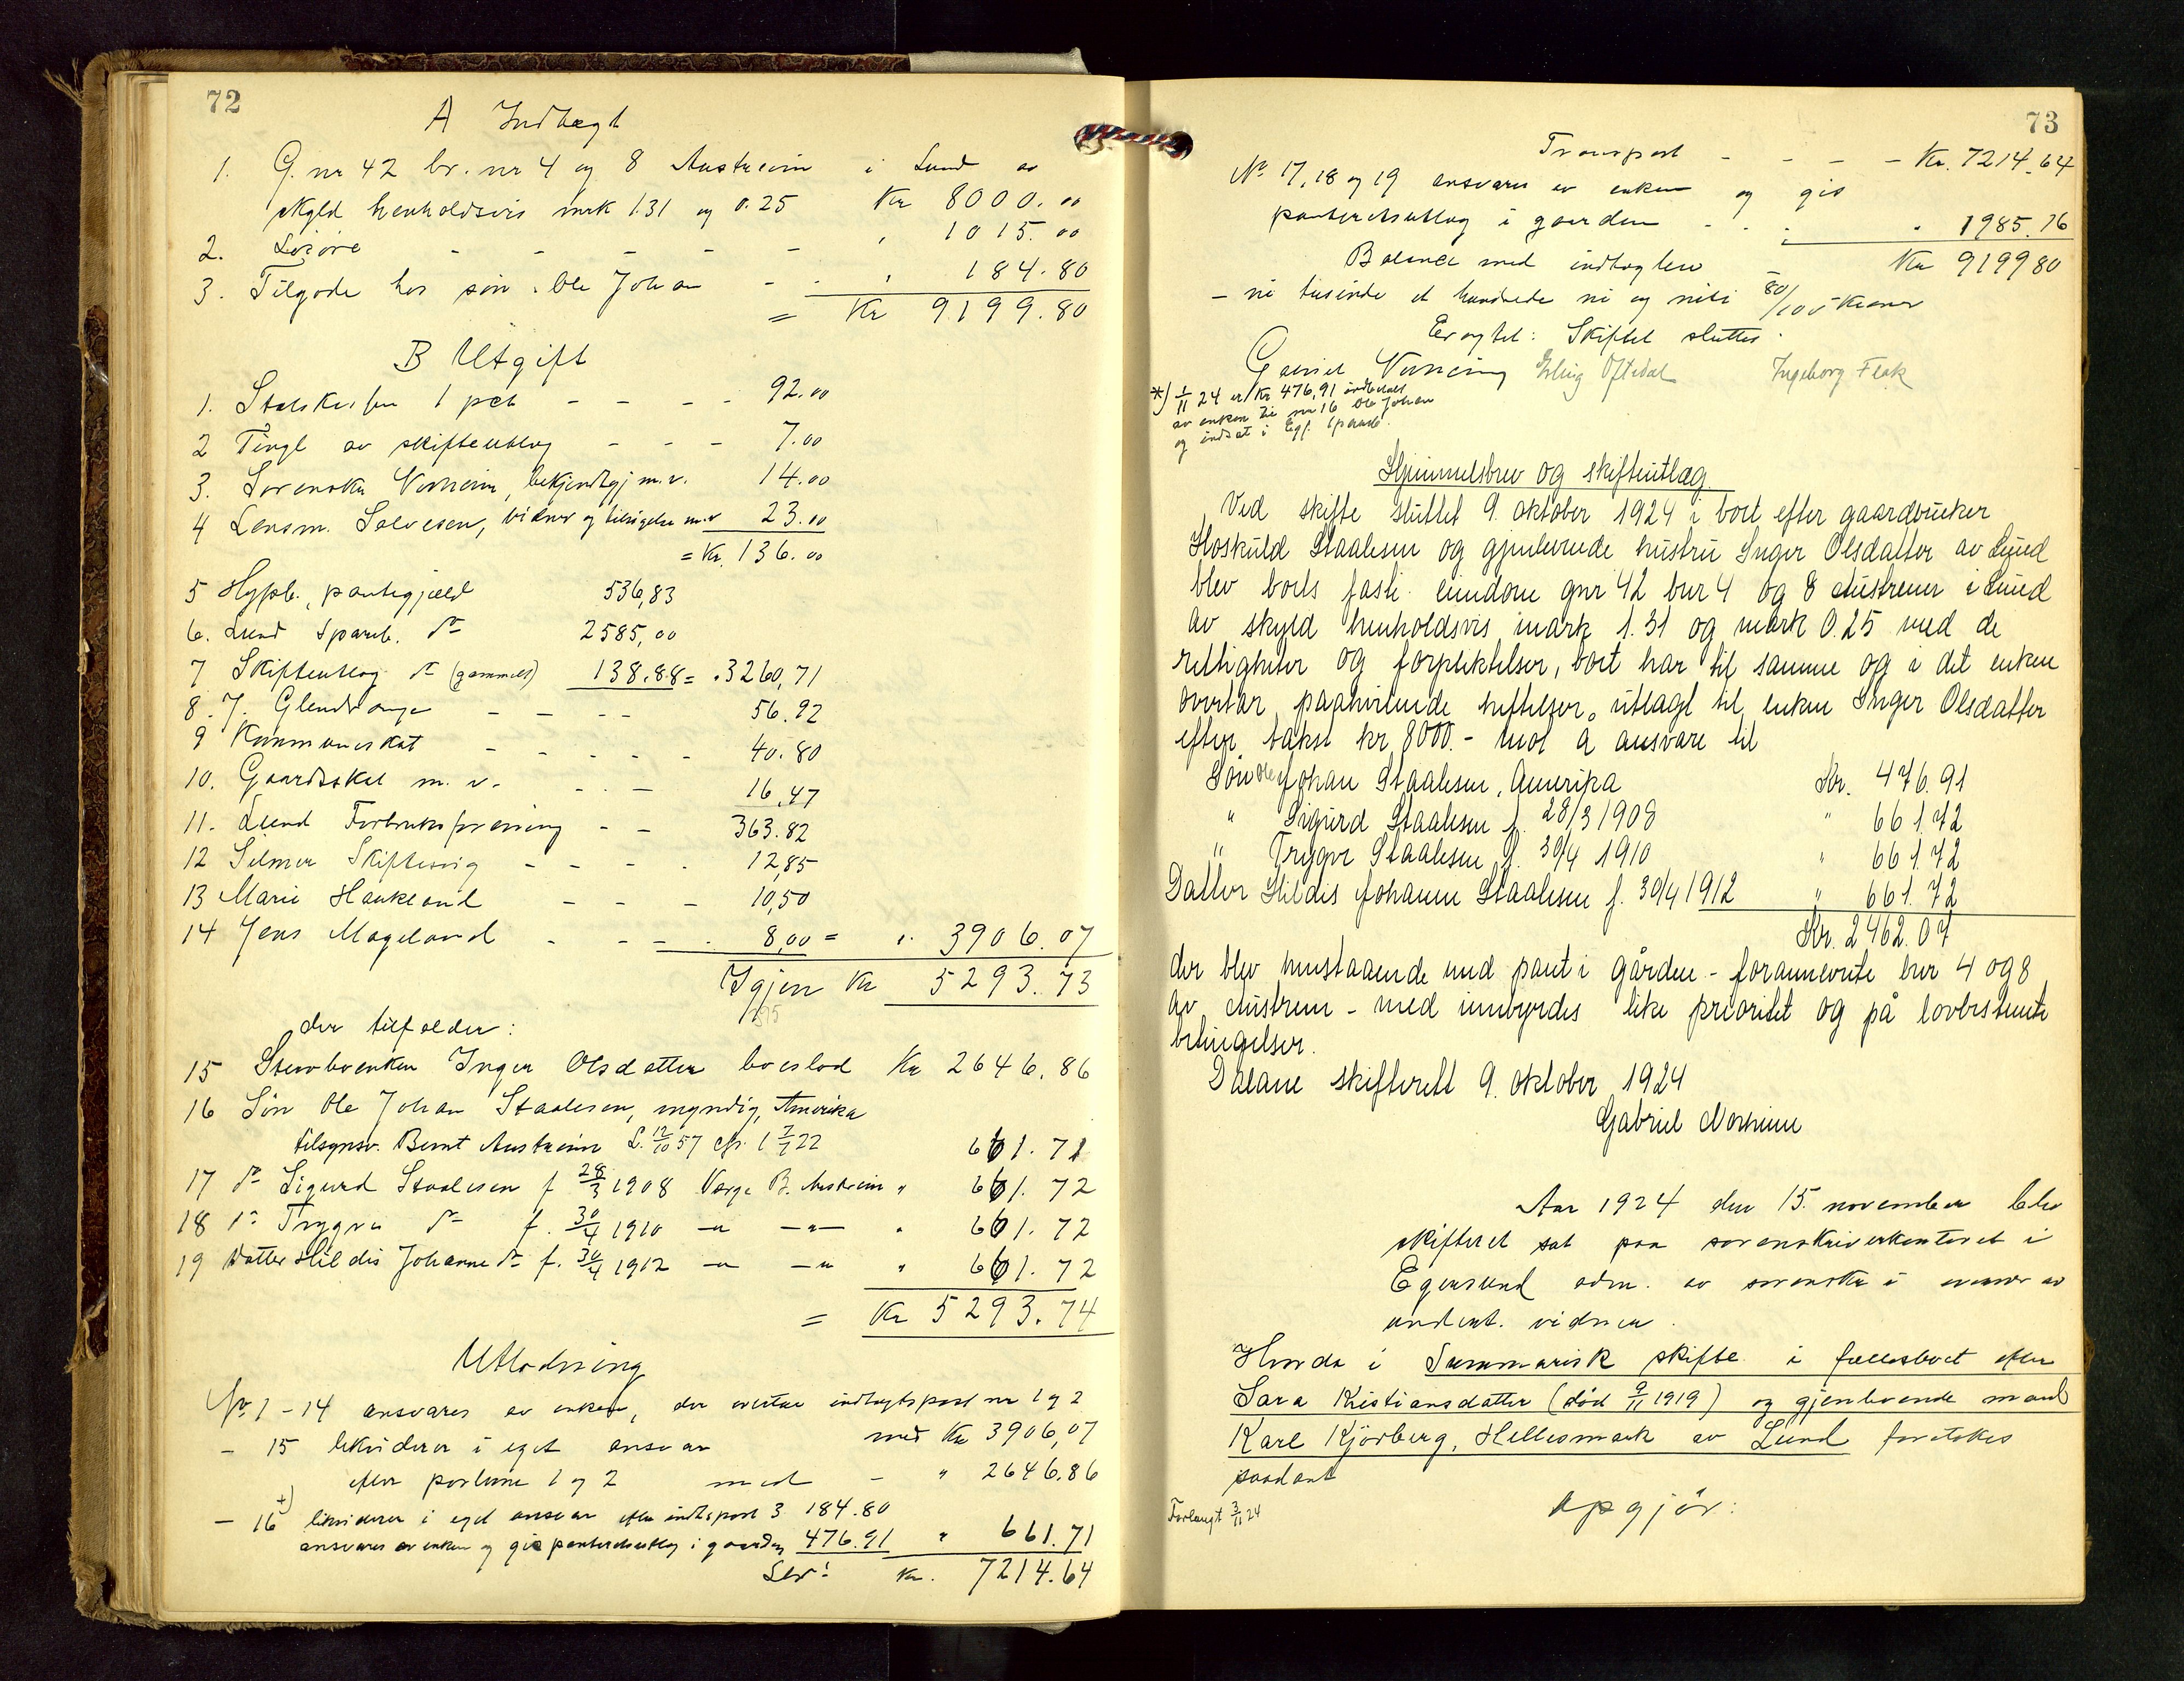 72
A Indtægt
1. G. nr 42 br. nr 4 og 8 Austreim i Lund av
skyld henholdsvis mrk 1.31 og 0.25 Kr 8000.00
2. Løsøre - - - - - " 1015.00
3. Tilgode hos søn Ole Johan - - " 184.80
= Kr 9199.80
B Utgift
1. Statskassen 1 pct - - - - 92.00
2 Tingl av skifteutlæg - - - 7.00
3. Sorenskr. Norheim, bekjendtgj m.v. 14.00
4 Lensm. Salvesen, vidner og tilsigelse m.v 23.00
= Kr. 136.00
5 Hypb., pantegjæld 536,83
6. Lund Spareb. do 2585,00
7 Skifteutlæg do (gammelt) 138.88 = " 3260,71
8. J. Glendrange - - - - 56.92
9 Kommuneskat - - - - - 40.80
10. Gaardsskat m.v. - - - 16,47
11. Lund Forbruksforening - - 363.82
12 Selmer Skiftesvig - - - - 12,85
13 Marie Haukland - - - 10,50
14 Jens Mageland - - - - 8,00 = " 3906.07
Igjen Kr 5293.73
der tilfalder:
15 Stervboenken Inger Olsdatter boeslod Kr 2646.86
16 Søn Ole Johan Staalesen, myndig, Amerika
tilsynsv. Bernt Austreim L. 12/10 57 cfr. l 7/7 22 661.71
17 do Sigurd Staalesen f 28/3 1908 Verge B. Austreim " 661.72
18 do Trygve do f. 30/4 1910 -"- -"- " 661.72
19 Datter Hildis Johanne do f. 30/4 1912 -"- -"- " 661.72
= Kr 5293.74
Utlodning
Nr 1-14 ansvares av enken, der overtar indtægtspost nr 1 og 2
med Kr 3906,07
- 15 likviderer i eget ansvar
efter posterne 1 og 2 med - " 2646.86
- 16 +) likviderer i eget ansvar efter indt.post 3 184.80
ansvares av enken og gis panteretsutlæg i gaarden 476.91 " 661.71
Lev: Kr. 7214.64
73
Transport - - - - Kr. 7214.64
No 17, 18 og 19 ansvares av enken og gis
panteretsutlæg i gaarden - - - " 1985.16
Balance med indtægten Kr 9199 80
- ni tusinde et hundrede ni og niti 80/100 - kroner
Eragtet: Skiftet sluttes.
Gabriel Norheim Erling Oftedal Ingeborg Flak
*) 1/11 24 er Kr 476,91 indbetalt
av enken til nr 16 Ole Johan
og indsat i Eg. Spareb.
Hjemmelsbrev og skifteutlæg.
Ved skifte sluttet 9. oktober 1924 i boet efter gaardbruker
Hoskuld Staalesen og gjenlevende hustru Inger Olsdatter av Lund
blev boets faste eiendom gnr 42 bnr 4 og 8 Austreim i Lund
av skyld henholdsvis mark 1.31 og mark 0.25 med de
rettigheter og forpliktelser, boet har til samme og i det enken
overtar paahvilende heftelser, utlagt til enken Inger Olsdatter
efter takst kr 8000.- mot å ansvare til
Søn Ole Johan Staalesen, Amerika Kr. 476.91
" Sigurd Staalesen f. 28/3 1908 " 661.72
" Trygve Staalesen f. 30/4 1910 " 661.72
Datter Hildis Johanne Staalesen f. 30/4 1912 " 661.72
Kr. 2462.07
der blev henstaaende med pant i gården - forannevnte bnr 4 og 8
av Austreim - med innbyrdes like prioritet og på lovbestemte
betingelser.
Dalane skifterett 9. oktober 1924
Gabriel Norheim
Aar 1924 den 15. november blev
skifteret sat paa sorenskriverkontoret i
Egersund adm. av sorenskr. i nærvær av
undert. vidner.
Hvorda i Summarisk skifte i fællesboet efter
Sara Kristiansdatter (død 9/11 1919) og gjenlevende mand
Karl Kjørberg, Hellesmark av Lund foretokes
saadant
Forlangt 3/11 24
Opgjør: